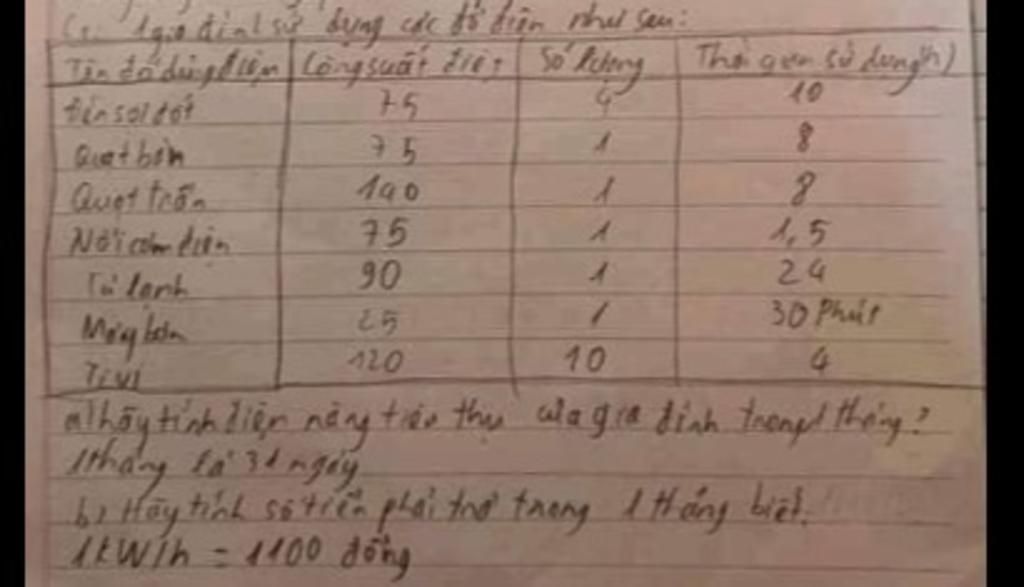 1 gia đình sử dụng các đồ điện như sau:
Tên đồ dùng điện Công suất điện Số lượng Thời gian sử dụng(h)
Đèn sợi đốt 75 4 10
Quạt bàn 75 1 8
Quạt trần 140 1 8
Nồi cơm điện 75 1 1,5
Tủ lạnh 90 1 24
25 1 30 Phút
Ti vi 120 10 4
a) hãy tính điện năng tiêu thụ của gia đình trong 1 tháng?
1 tháng là 31 ngày
b) Hãy tính số tiền phải trả trong 1 tháng biết.
1kW/h = 1100 đồng